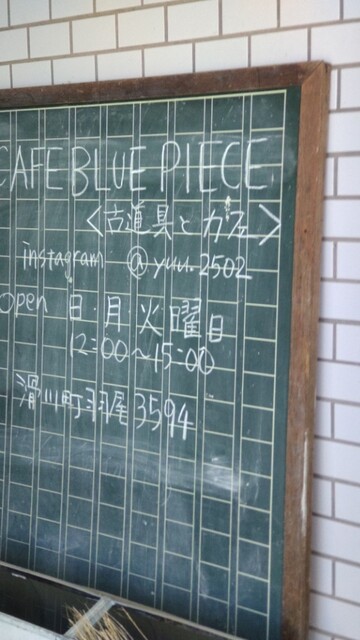 CAFE BLUE PIECE
<古道具とカフェ>
instagram @yuu.2502
open 日・月・火曜日
12:00~15:00
滑川町羽尾3594